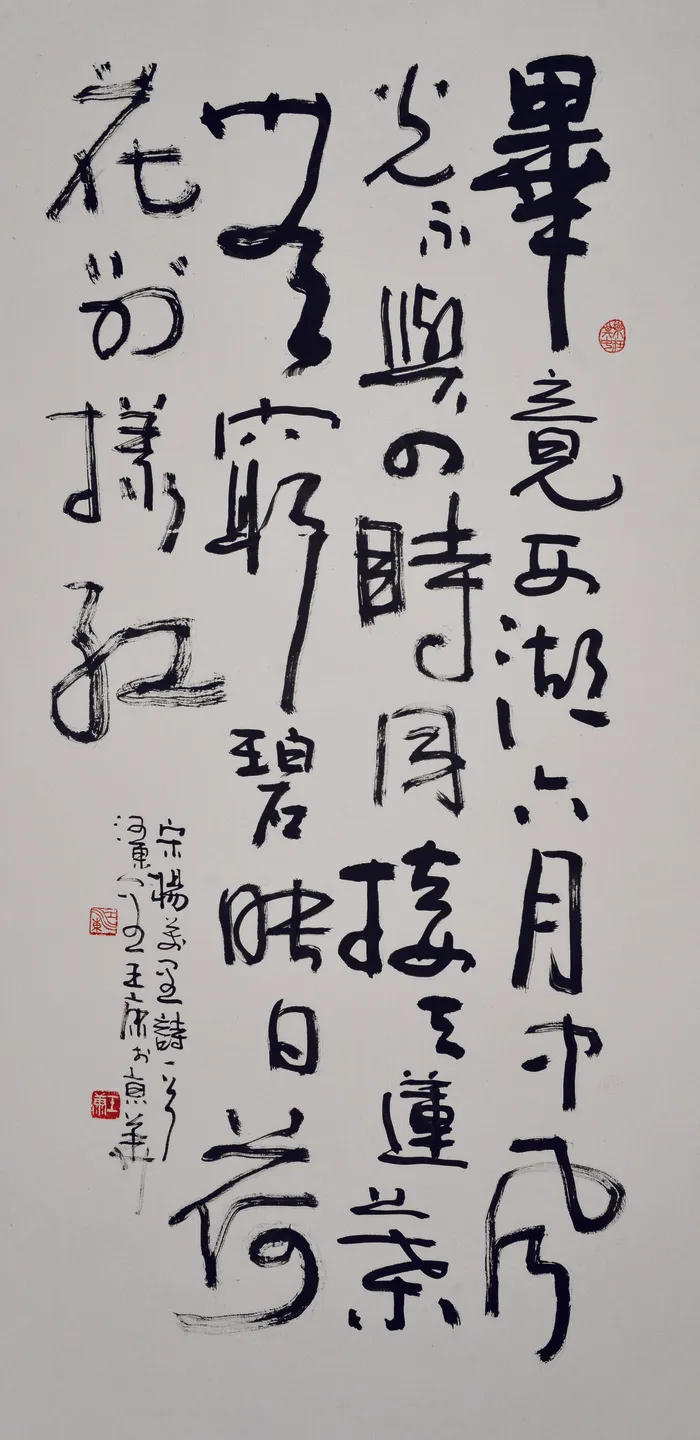 畢竟西湖六月中風
光不與四時同接天蓮葉
無窮碧映日荷
花別樣紅
宋楊萬里詩一首
河東 王 於京華